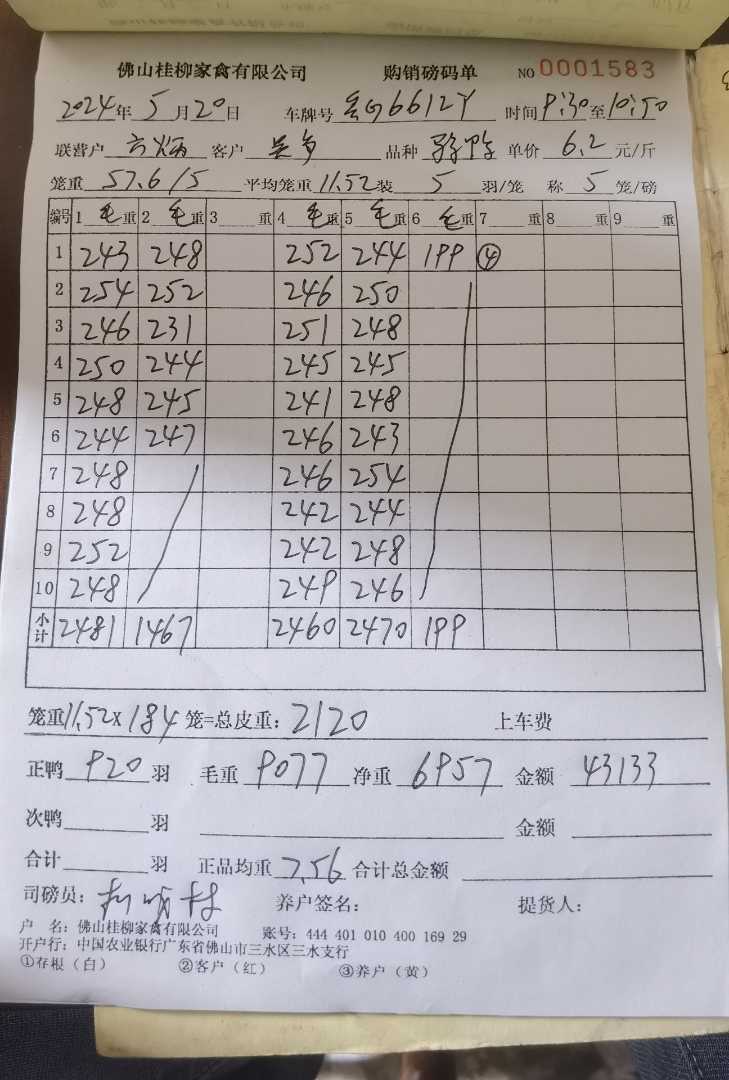 佛山桂柳家禽有限公司 购销磅码单 NO 0001583
2024年5月20日 车牌号 6612Y 时间9:30至10:50
联营户 客户 吴 品种 单价 6.2 元/斤
笼重 57.6/5 平均笼重11.52装 5 羽/笼 称 5 笼/磅
编号 1 毛重 2 毛重 3 重 4 毛重 5 毛重 6 毛重 7 重 8 重 9 重
1 243 248 252 244 199 ④
2 254 252 246 250
3 246 231 251 248
4 250 244 245 245
5 248 245 241 248
6 244 247 246 243
7 248 246 254
8 248 242 244
9 252 242 248
10 248 249 246
小计 2481 1467 2460 2470 199
笼重11.52X184笼=总皮重：2120 上车费
正鸭 920 羽 毛重 9077 净重 6957 金额 43133
次鸭 羽 金额
合计 羽 正品均重 7.56 合计总金额
司磅员： 养户签名： 提货人：
户 名：佛山桂柳家禽有限公司 账号：444 401 010 400 169 29
开户行：中国农业银行广东省佛山市三水区三水支行
①存根（白） ②客户（红） ③养户（黄）